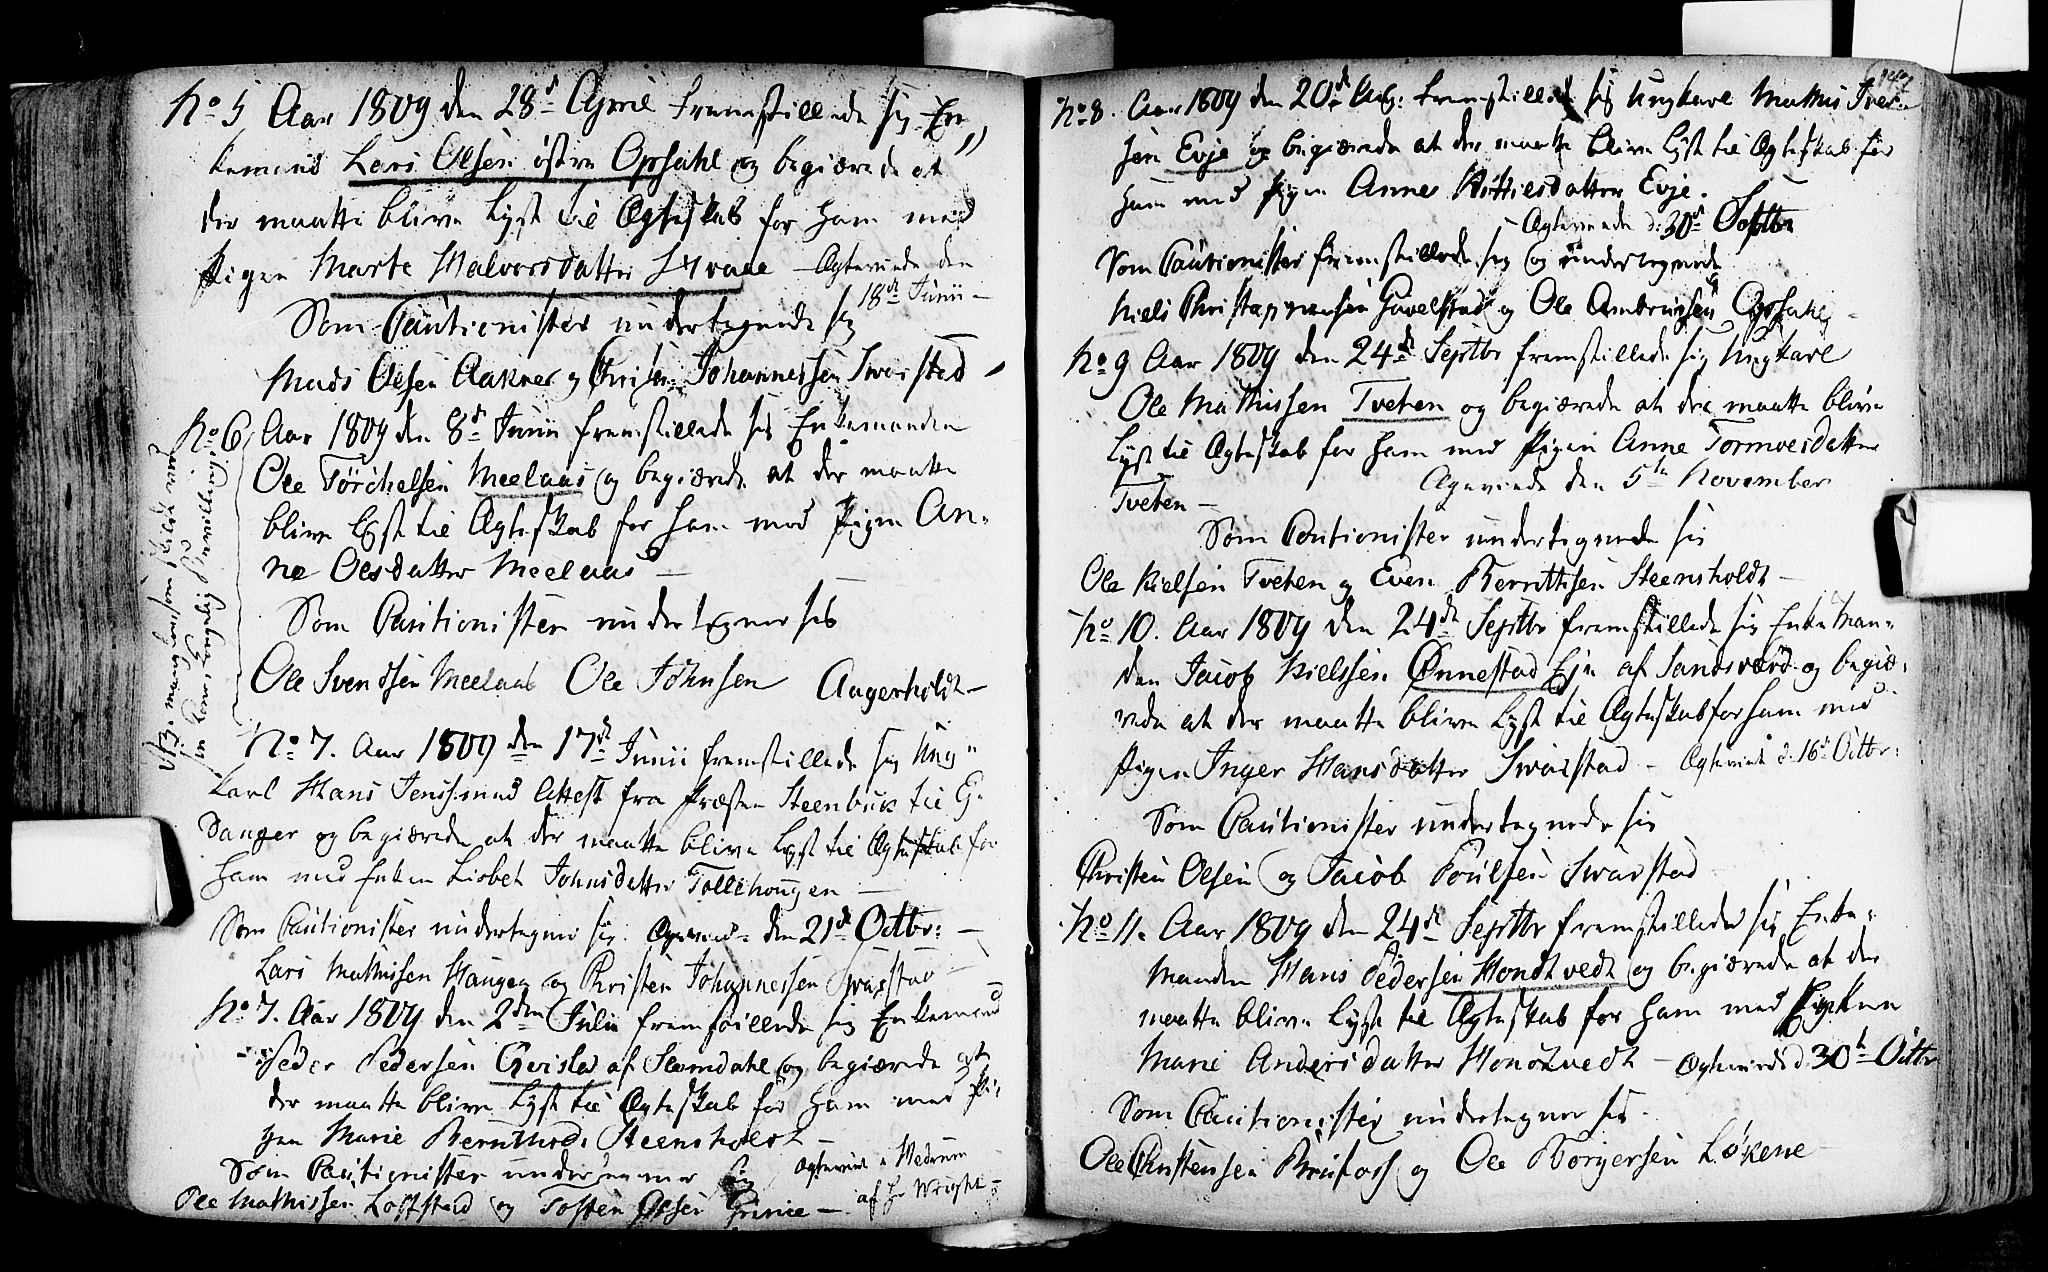 No 5 Aar 1809 den 28de April fremstillede sig En„
kemand Lars Olsen østre Opsahl og begiærede at
der maatte blive lyst til Ægteskab for ham med
Pigen Marte Halvorsdatter Hvaale - Ægteviede den
18de Junii -
Som Cautionister undertegnede sig
Mads Olsen Aakner og Christen Johannessen Svarstad
No 6, Aar 1809 den 8de Junii fremstillede sig Enkemanden
Ole Törchelsen Meelaas og begiærede at der maatte
blive lyst til Ægteskab for ham med Pigen An=
ne Olesdatter Meelaas -
Som Cautionister undertegner sig
Ole Svendsen Meelaas Ole Johnsen Aagerholdt -
No 7. Aar 1809 den 17de Junii fremstillede sig Ung„
Karl Hans Jenssen med Attest fra Præsten Steenbuk til E=
danger og begiærede at der maatte blive lyst til Ægteskab for
ham med Enken Lisbet Johnsdatter Tollehougen -
Som Cautionister undertegner sig. Ægteviede den 21de Octbr: -
Lars Mathisen Haugen og Christen Johannessen Svarstad -
No 7. Aar 1809 den 2den Julii fremstillede sig Enkemand
Peder Pedersen Gevelstad af Slemdahl og begiærede at
der maatte blive lyst til Ægteskab for ham med Pi=
gen Marie Berntsd: Steensholdt -
Som Cautionister undertegner sig Ægteviet i Hedrum
Ole Mathissen Loffstad og Tosten Olsen Grinie - af Hr Wright -
147
No 8. Aar 1809 den 20de Aug: fremstillede sig Ungkarl Mathis Iver=
sen Evje og begiærede at der maatte blive lyst til Ægteskab for
ham med Pigen Anne Mathiesdatter Evje.
- Ægteviede d: 30de Septbr
Som Cautionister fremstillede sig og undertegnede
Niels Christophersen Gavelstad og Ole Ambrosisen Opsahl -
No 9 Aar 1809 den 24de Septbr fremstillede sig Ungkarl
Ole Mathissen Tveten og begiærede at der maatte blive
lyst til Ægteskab for ham med Pigen Anne Tormoesdatter
Tveten - Ægteviede den 5te November
Som Cautionister undertegnede sig
Ole Nielsen Tveten og Even Berntsen Steensholdt -
No 10. Aar 1809 den 24de Septbr fremstillede sig Enke Man=
den Jacob Nielssen Ønnestad Eje af Sandsværd og begiæ=
rede at der maatte blive lyst til Ægteskab for ham med
Pigen Inger Hansdatter Svarstad - Ægteviet d: 16de Octbr:
Som Cautionister undertegnede sig
Christen Olsen og Jacob Poulsen Svarstad
No 11. Aar 1809 den 24de Septbr fremstillede sig Enke=
manden Hans Pedersen Hondtvedt og begiærede at der
maatte blive lyst til Ægteskab for ham med
Marie Andersdatter Hondtvedt - Ægteviede d: 30te Octbr
Som Cautionister undertegner sig -
Ole Christensen Brufoss og Ole Borgersen Løkene